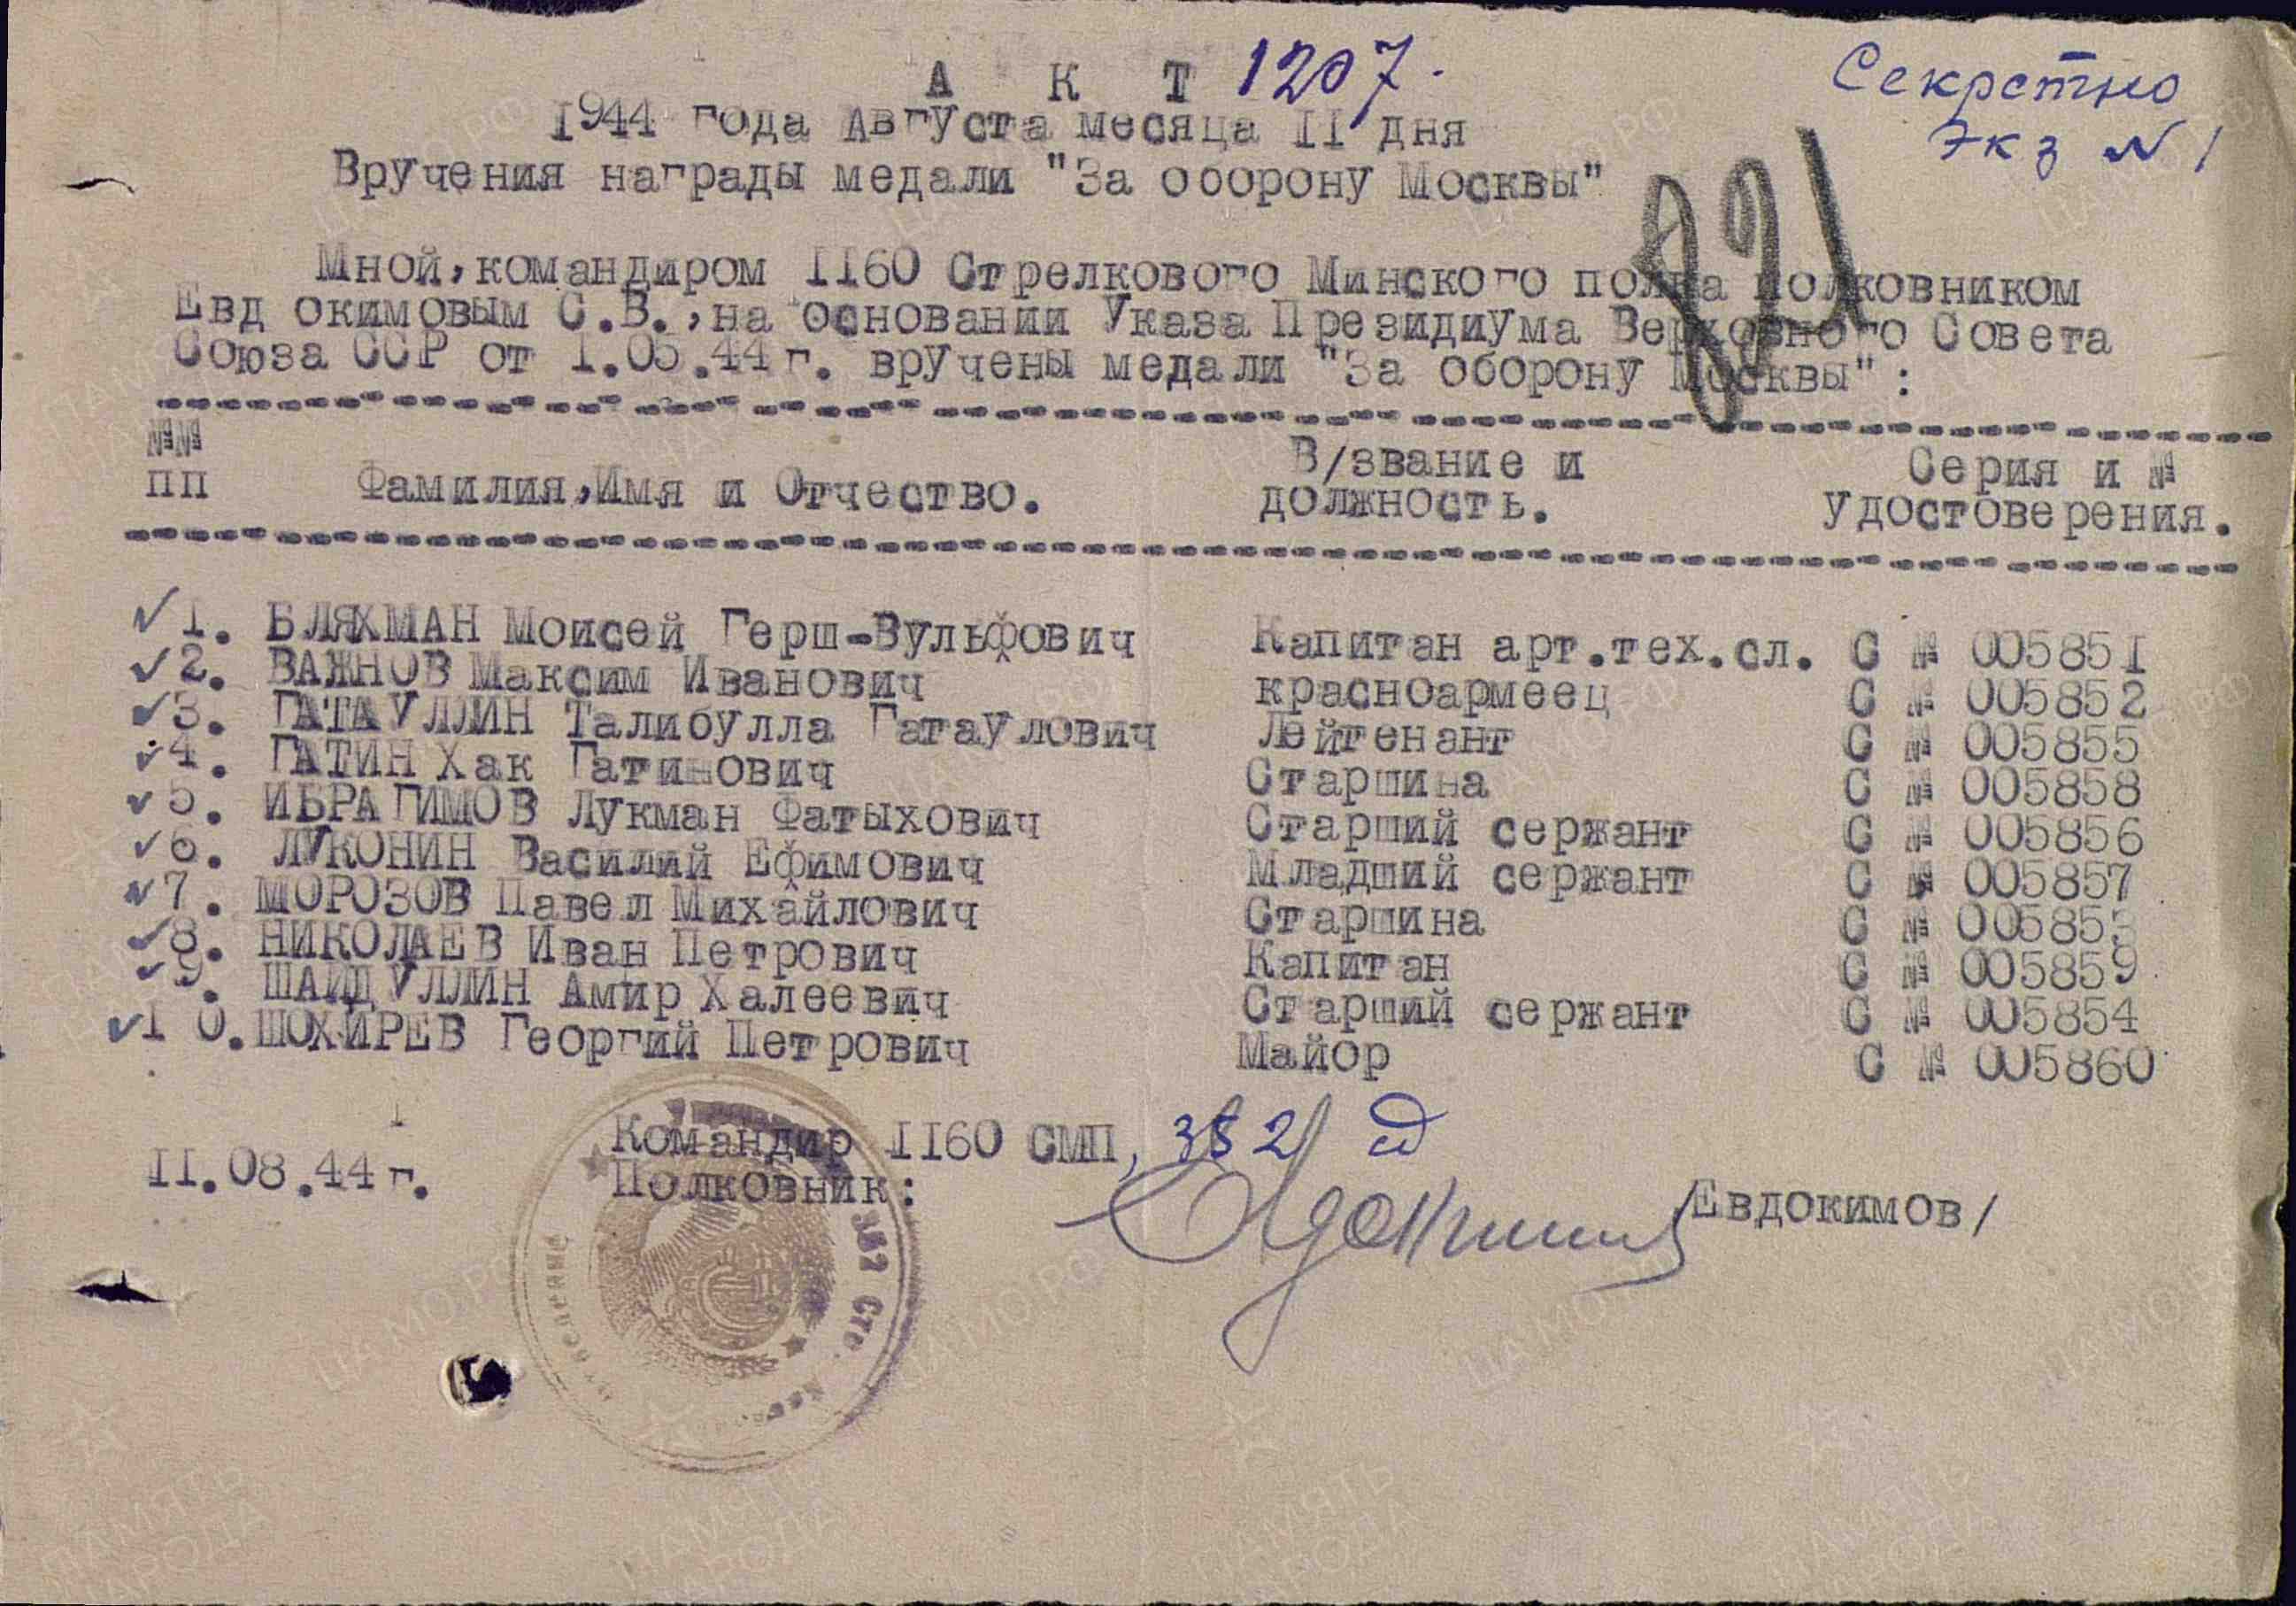 А К Т 1207.
Секретно
Экз № 1
1944 года Августа месяца II дня
Вручения награды медали "За оборону Москвы"
821
Мной, командиром II60 Стрелкового Минского полка полковником
Евдокимовым С.В., на основании Указа Президиума Верховного Совета
Союза ССР от I.05.44 г. вручены медали "За оборону Москвы":
№№ пп Фамилия, Имя и Отчество. В/звание и должность. Серия и № удостоверения.
1. БЛЯХМАН Моисей Герш-Вульфович Капитан арт.тех.сл. С № 00585I
2. ВАЖНОВ Максим Иванович красноармеец С № 005852
3. ГАТАУЛЛИН Талибулла Гатаулович Лейтенант С № 005855
4. ГАТИН Хак Гатинович Старшина С № 005858
5. ИБРАГИМОВ Лукман Фатыхович Старший сержант С № 005856
6. ЛУКОНИН Василий Ефимович Младший сержант С № 005857
7. МОРОЗОВ Павел Михайлович Старшина С № 005853
8. НИКОЛАЕВ Иван Петрович Капитан С № 005859
9. ШАЙДУЛЛИН Амир Халеевич Старший сержант С № 005854
I0. ШОХИРЕВ Георгий Петрович Майор С № 005860
Командир II60 СМП, 352 сд
II.08.44 г.
Полковник: Евдокимов/
352 Стр.
ЦАМО.РФ
ПАМЯТЬ НАРОДА